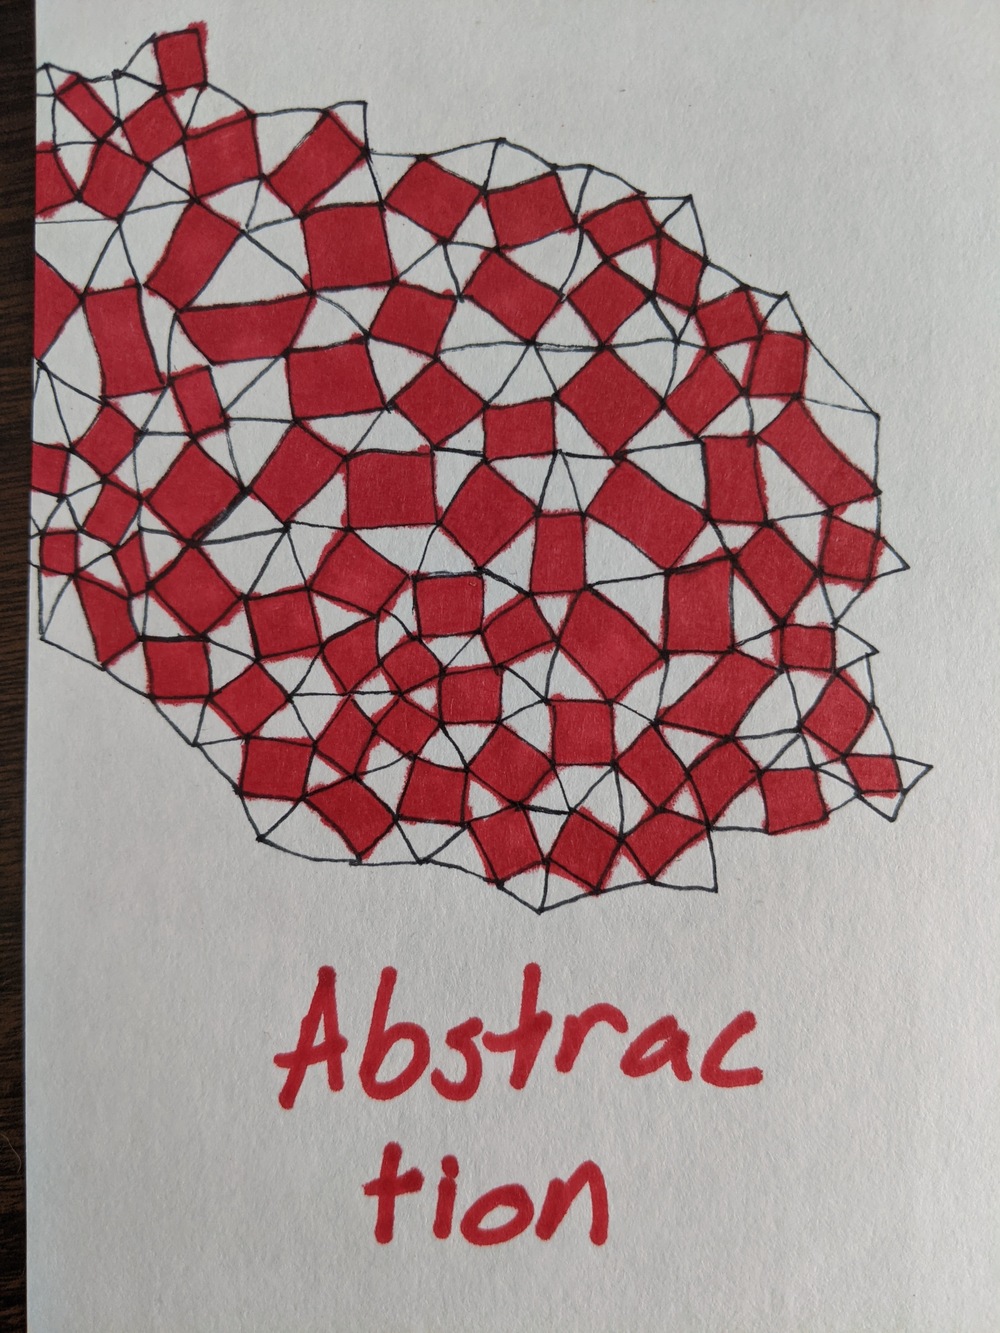 Abstrac
tion